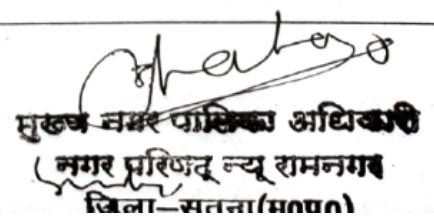 मुख्य नगर पालिका अधिकारी
नगर परिषद् न्यू रामनगर
जिला–सतना(म०प्र०)